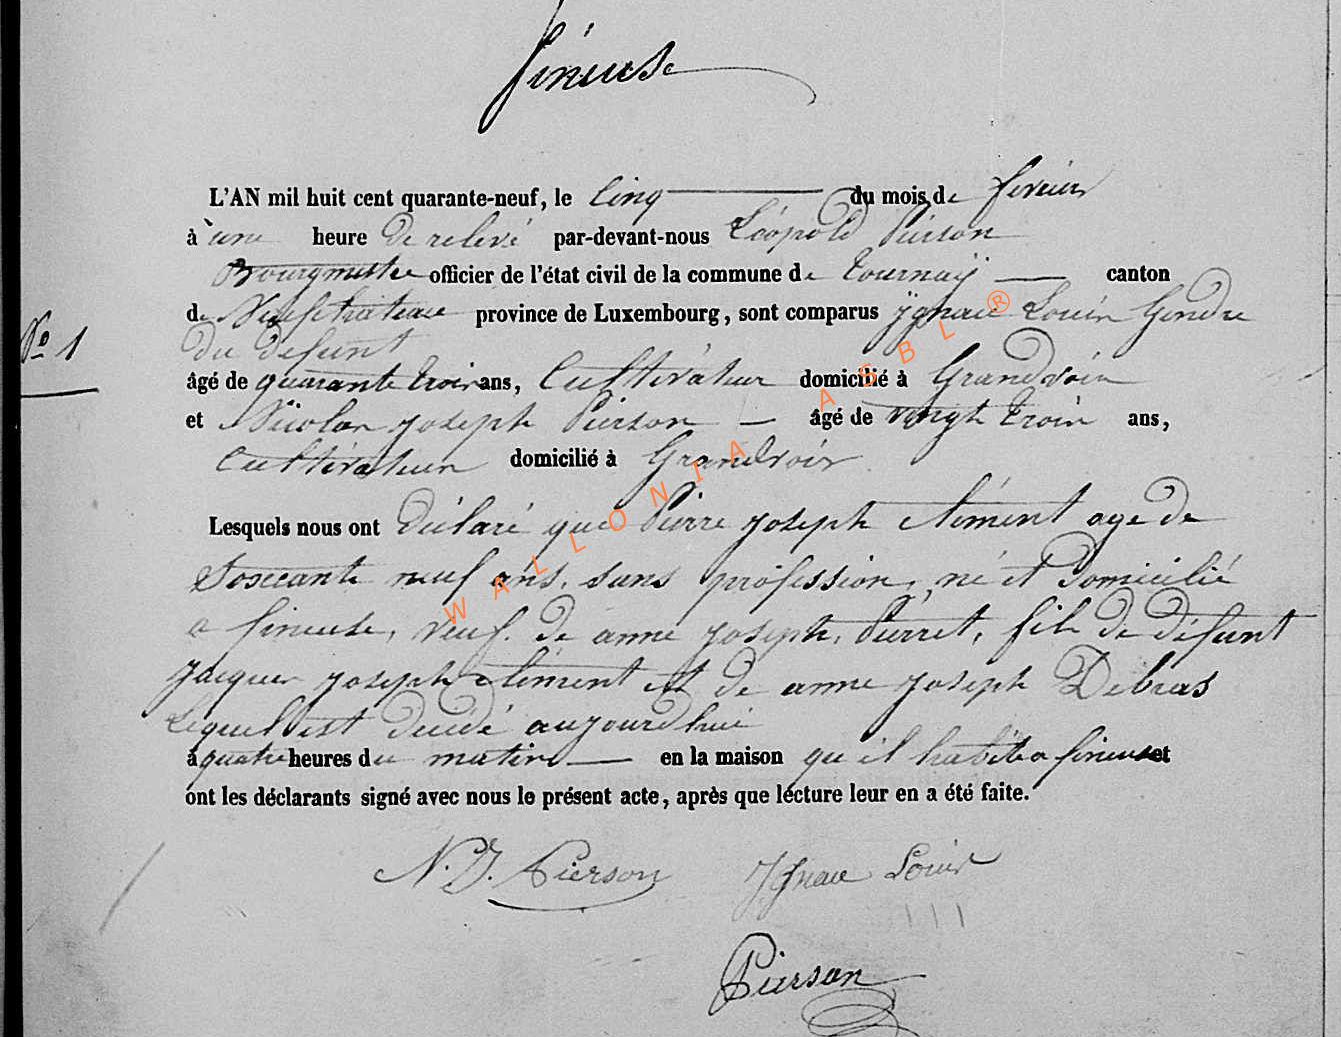 fineuse
L'AN mil huit cent quarante-neuf, le Cinq du mois de fevrier
à une heure De relevé par-devant-nous Léopold Pierson
Bourgmestre officier de l'état civil de la commune de tournaÿ canton
de Neufchateau province de Luxembourg, sont comparus ÿgnace Louis Gendre
Du defunt
âgé de quarante trois ans, Cultivateur domicilié à Grandvoir
et Nicolas joseph Pierson âgé de vingt trois ans,
Cultivateur domicilié à Grandvoir
Lesquels nous ont Déclaré que Pierre joseph clément age de
Soixante neuf ans, sans profession, né et Domicilié
a fineuse, veuf. De anne joseph, Pierret, fils De défunt
jacques joseph clément et De anne joseph Debras
Lequel est Décédé aujourd'hui
à quatre heures du matin en la maison qu'il habite a fineuse et
ont les déclarants signé avec nous le présent acte, après que lecture leur en a été faite.
N.J. Pierson Ignace Louis
Pierson
No 1
WALLONIA ASBL ®